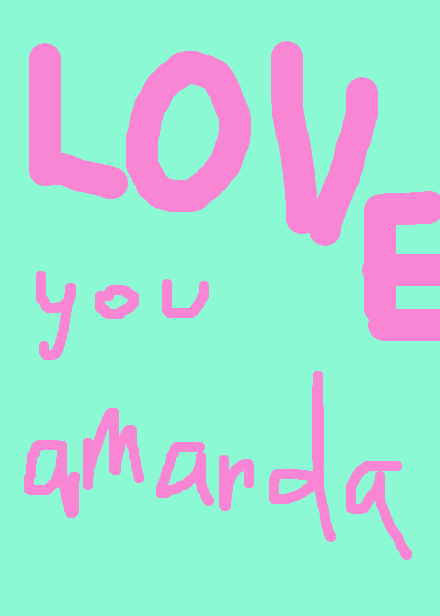 LOVE
you
amanda